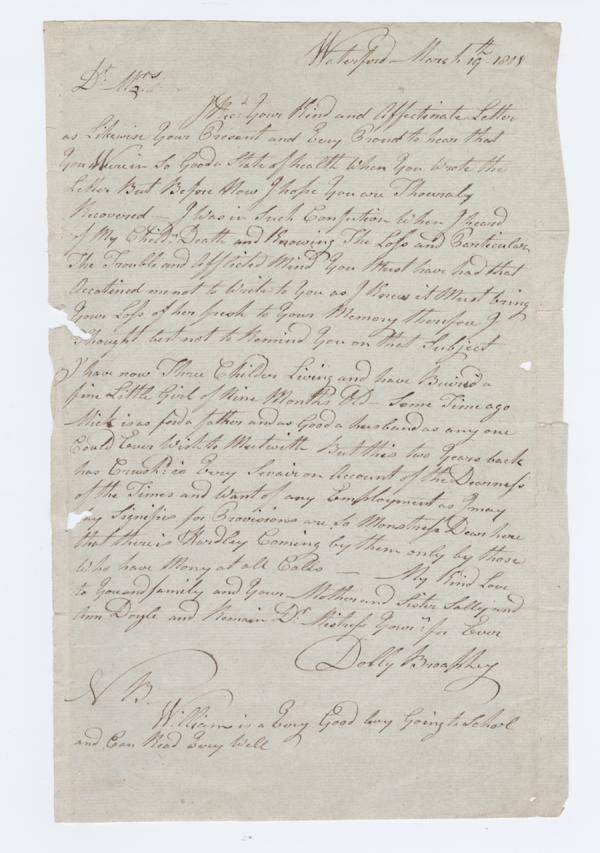 Waterford March 19th 1801
Dr. Mrs
I Recd Your Kind and Affectinate Letter
as Likewise Your Present and Very Proud to hear that
You Were in So Good a State of health When You Wrote the
Letter But Before Now I hope You are Thouraly
Recovered — I Was in Such Confution When I heard
of My Childs Death and Knowing The Loss and Particular
The Trouble and Afflicted Mind You Must have had that
Occationed me not to Write to You as I Knew it Must bring
Your Loss of her fresh to Your Memory therefore I
Thought best not to Remind You on that Subject
I have now Three Childer Living and have Buried a
fine Little Girl of Nine Months Old — Some Time ago
Mick is as fond a father and as Good a husband as any one
Could Ever Wish to Meet with But this two Years back
has Crush us Very Sevair on Account of the Dearness
of the Times and Want of any Employment as I may
say Signifies for Provisions are so Monstress Dear here
that there is Hardley Coming by them only by those
Who have Mony at all Calls — My Kind Love
to You and family and Your Mother and Sister Salley and
Ann Doyle and Remain Dr. Mistress Yours for Ever
Dolly Brophey
N B.
William is a Very Good boy Going to School
and Can Read Very Well